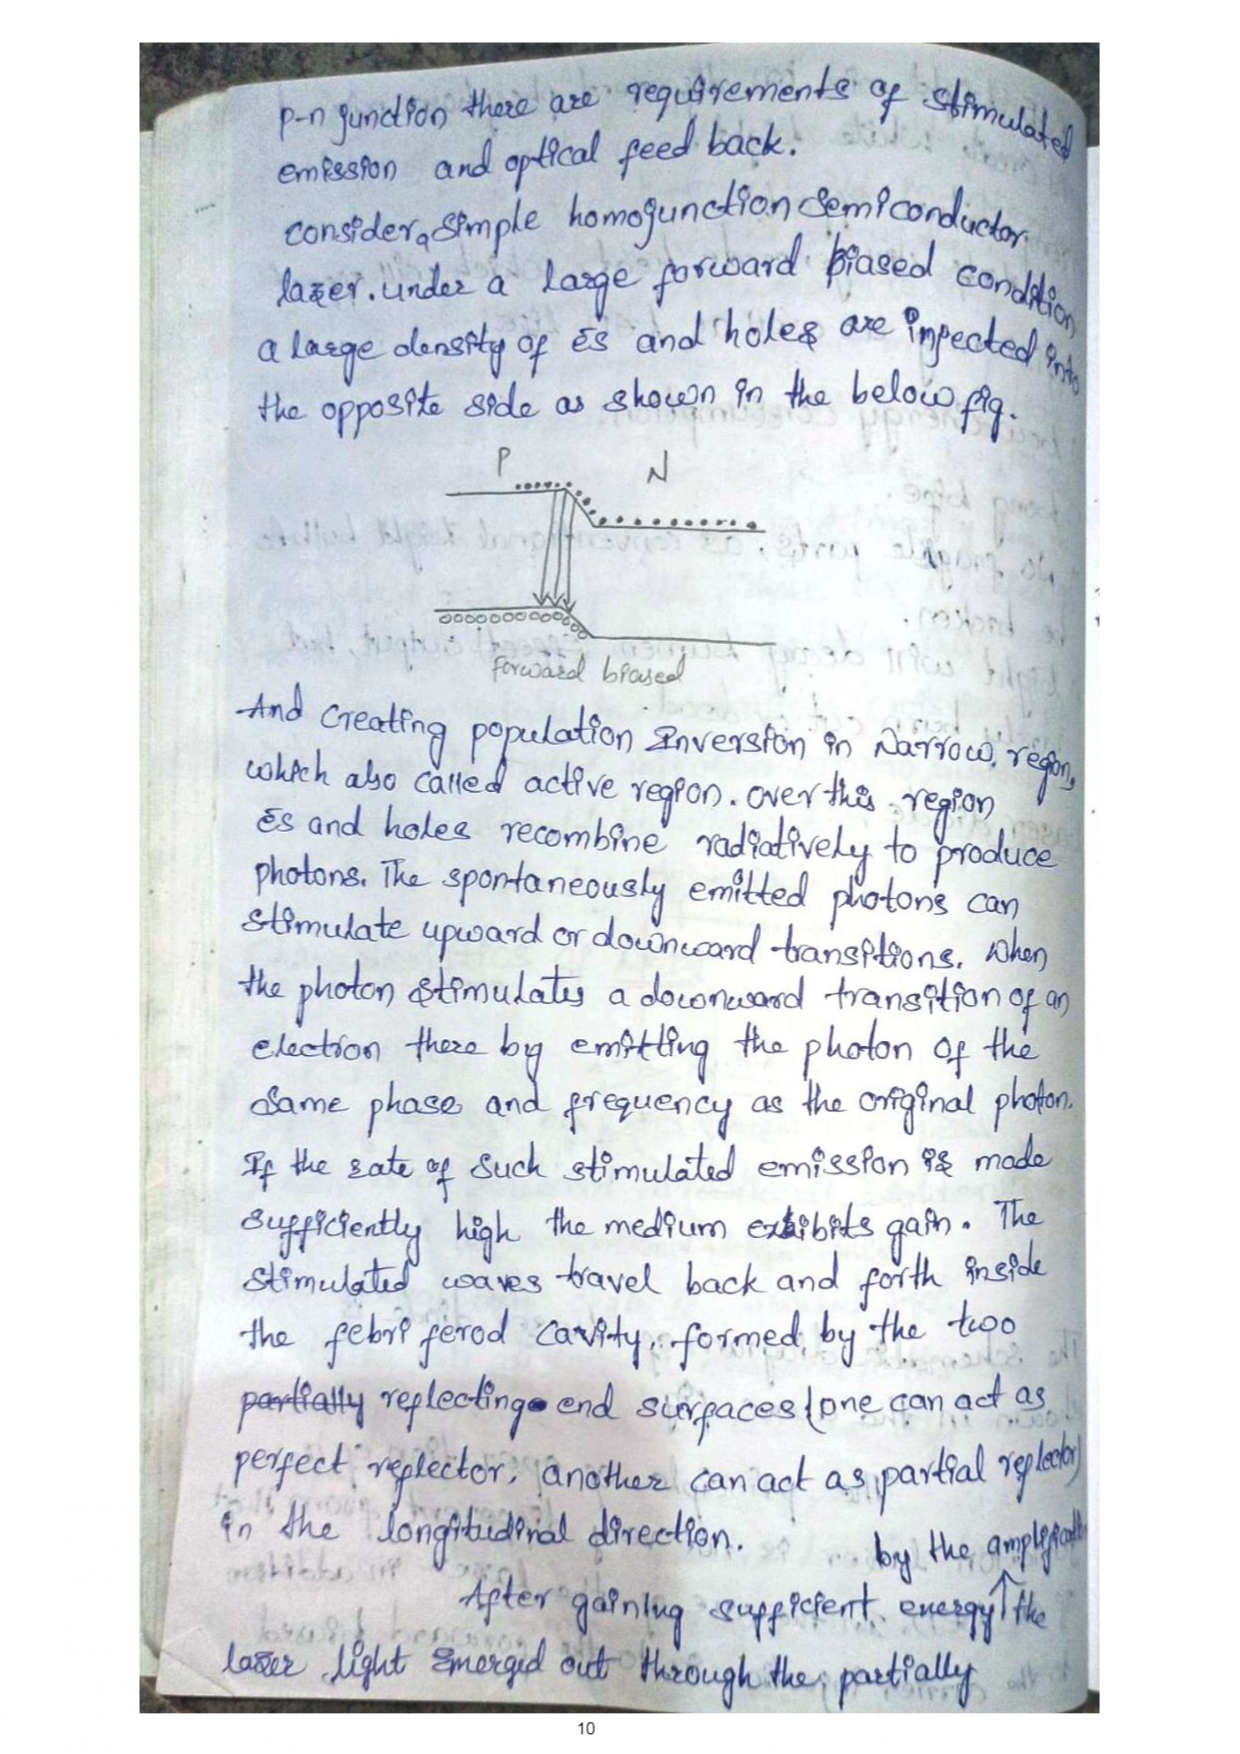 p-n junction there are requirements of stimulated
emission and optical feed back.
consider a simple homojunction semiconductor
lazer. under a large forward biased condition
a large density of ēs and holes are injected into
the opposite side as shown in the below fig.
P N
forward biased
And creating population Inversion in Narrow region,
which also called active region. over this region
ēs and holes recombine radiatively to produce
photons. The spontaneously emitted photons can
stimulate upward or downward transitions. When
the photon stimulates a downward transition of an
election there by emitting the photon of the
same phase and frequency as the original photon.
If the rate of such stimulated emission is made
sufficiently high the medium exhibits gain. The
stimulated waves travel back and forth inside
the febri ferod cavity, formed by the two
partially reflecting end surfaces (one can act as
perfect reflector, another can act as partial reflector)
in the longitudinal direction.
by the
After gaining sufficient energy ↑ the
laser light Emerged out through the partially
10